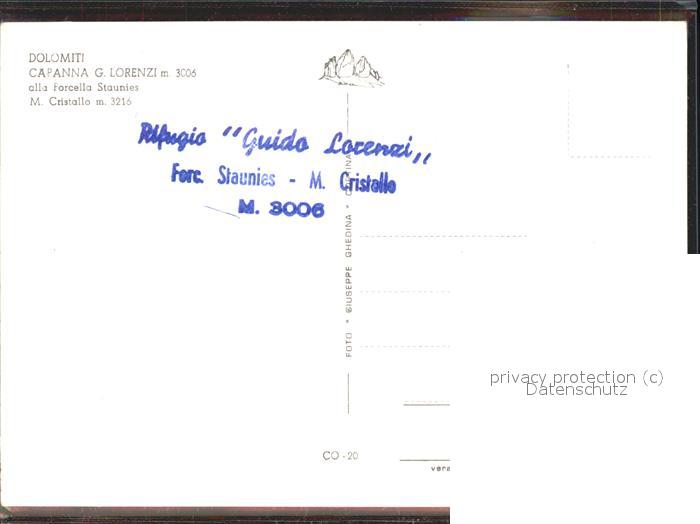 DOLOMITI
CAPANNA G. LORENZI m. 3006
alla Forcella Staunies
M. Cristallo m. 3216
Rifugio "Guido Lorenzi„
Forc. Staunies - M. Cristallo
M. 3006
FOTO * GIUSEPPE GHEDINA *
CO - 20
vera
privacy protection (c)
Datenschutz